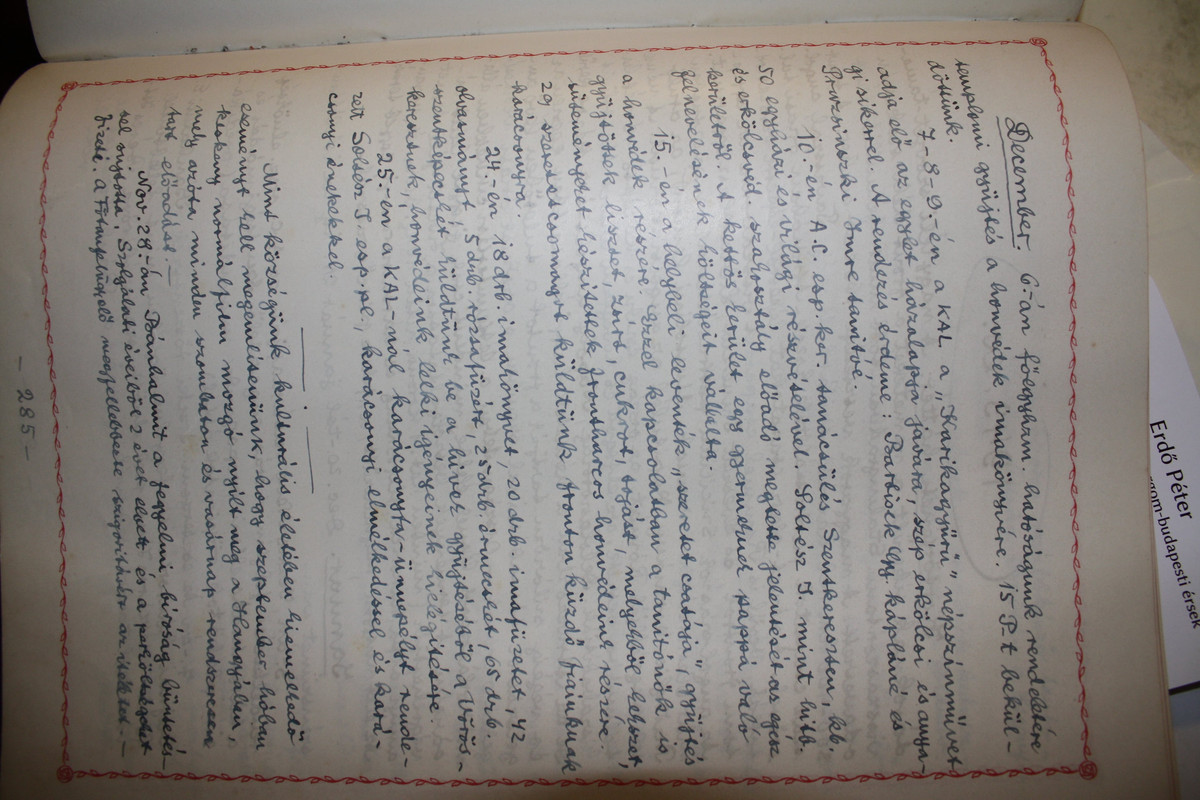 December. 6-án főegyházm. hatóságunk rendeletére
templomi gyűjtés a honvédek imakönyvére. 15 P-t bekül-
döttünk.
7-8-9.-én a KAL a „Karikagyűrű" népszínművet
adja elő az egylet házalapja javára, szép erkölcsi és anya-
gi sikerrel. A rendezés érdeme: Barlisek Egy. kápláné és
Provsinszki Imre tanítóé.
10.-én A.C. esp. ker. tanácsülés Szentkereszten, kb.
50 egyházi és világi résztvétellel. Soltész J. mint hitb.
és erkölcsvéd. szakosztály előadó megtette jelentését az egész
kerületről. A kettős kerület egy gyermek pappá való
felnevelésének költségeit vállalta.
15.-én a helybeli leventék „szeretet csatája", gyűjtés
a honvédek részére. Ezzel kapcsolatban a tanítónők is
gyűjtöttek lisztet, zsírt, cukrot, tojást, melyekből lelkes
süteményeket készítettek frontharcos honvédeink részére.
29 szeretetcsomagot küldtünk fronton küzdő fiainknak
karácsonyra.
24.-én 18 drb. imakönyvet, 20 drb. imafüzetet, 42
olvasmányt, 5 drb. rózsafüzért, 25 drb. érmecskét, 65 drb.
szentképecskét küldtünk be a hívek gyűjtéséből a Vörös-
keresztnek, honvédeink lelki igényeinek kielégítésére.
25.-én a KAL-nál karácsonyfa-ünnepélyt rende-
zett Soltész J. esp. pl., karácsonyi elmélkedéssel és kará-
csonyi énekekkel.
Mint községünk kulturális életében kiemelkedő
eseményt kell megemlítenünk, hogy szeptember hóban
keskeny normálfilm mozgó nyílt meg a Hangyában,
mely azóta minden szombaton és vasárnap rendszeresen
tart előadást.—
Nov. 28-án Pannalmit a fegyelmi bíróság büntetés-
sel sújtotta. Szolgálati éveiből 2 évet elvet és a perköltségeket
fizeti. a Főügyigazgató megfellebbezte szigorításért az ítéletet.—
- 285 -
Erdő Péter
gom-budapesti érsek